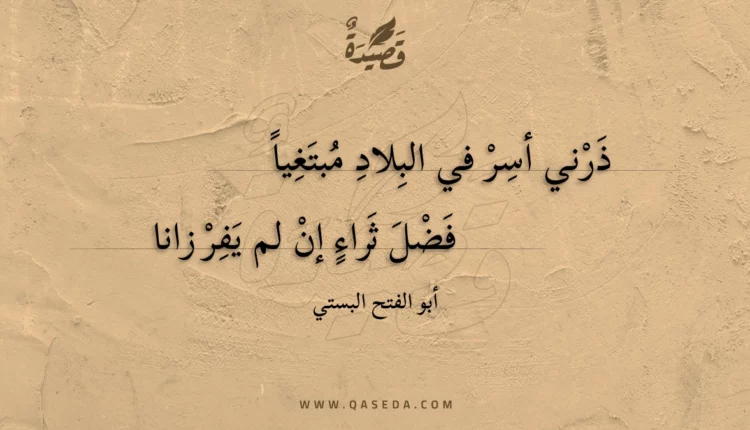 قَصِيدَةٌ
ذَرْني أسِرْ في البِلادِ مُبتَغِياً
فَضْلَ ثَراءٍ إنْ لم يَفِرْ زانا
أبو الفتح البستي
WWW.QASEDA.COM